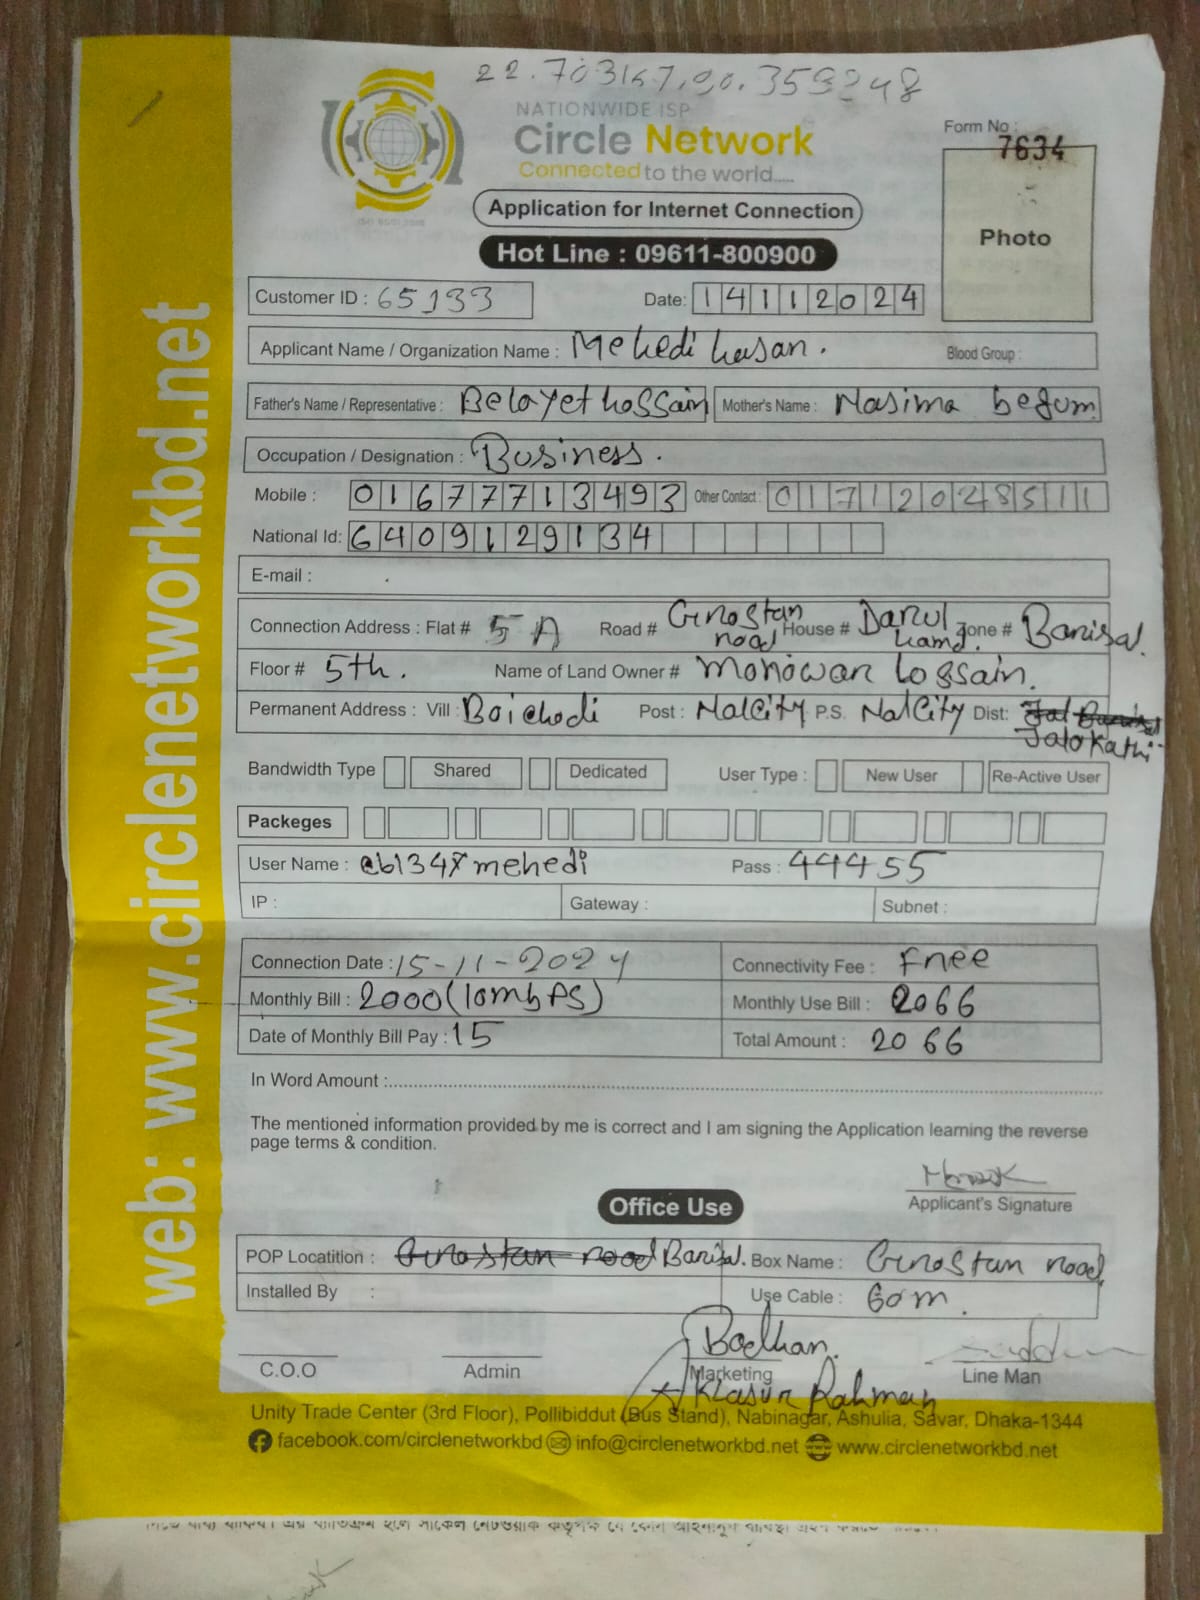 22.703167,90.359248
NATIONWIDE ISP
Circle Network
Connected to the world.....
ISO 9001:2015
Form No :
7634
Photo
Application for Internet Connection
Hot Line : 09611-800900
Customer ID : 65133
Date: 14112024
Applicant Name / Organization Name : Mehedi hasan. Blood Group :
Father's Name / Representative : Belayet hossain Mother's Name : Nasima begum
Occupation / Designation : Business.
Mobile : 01677713493 Other Contact : 01712028511
National Id: 6409129134
E-mail :
Connection Address : Flat # 5 A Road # Gorostan road House # Darul hamd. Zone # Barisal.
Floor # 5th. Name of Land Owner # monowar hossain.
Permanent Address : Vill : Boichodi Post : NalCity P.S. NalCity Dist: Jalokathi
Bandwidth Type Shared Dedicated User Type : New User Re-Active User
Packeges
User Name : cb1347mehedi Pass : 44455
IP : Gateway : Subnet :
Connection Date : 15-11-2024 Connectivity Fee : Free
Monthly Bill : 2000(10mbPS) Monthly Use Bill : 2066
Date of Monthly Bill Pay : 15 Total Amount : 2066
In Word Amount :
The mentioned information provided by me is correct and I am signing the Application learning the reverse
page terms & condition.
Applicant's Signature
Office Use
POP Locatition : Gorostan road Barisal. Box Name : Gorostan road,
Installed By : Use Cable : 60m.
C.O.O Admin Marketing Line Man
Rahman
Unity Trade Center (3rd Floor), Pollibiddut (Bus Stand), Nabinagar, Ashulia, Savar, Dhaka-1344
facebook.com/circlenetworkbd info@circlenetworkbd.net www.circlenetworkbd.net
web: www.circlenetworkbd.net